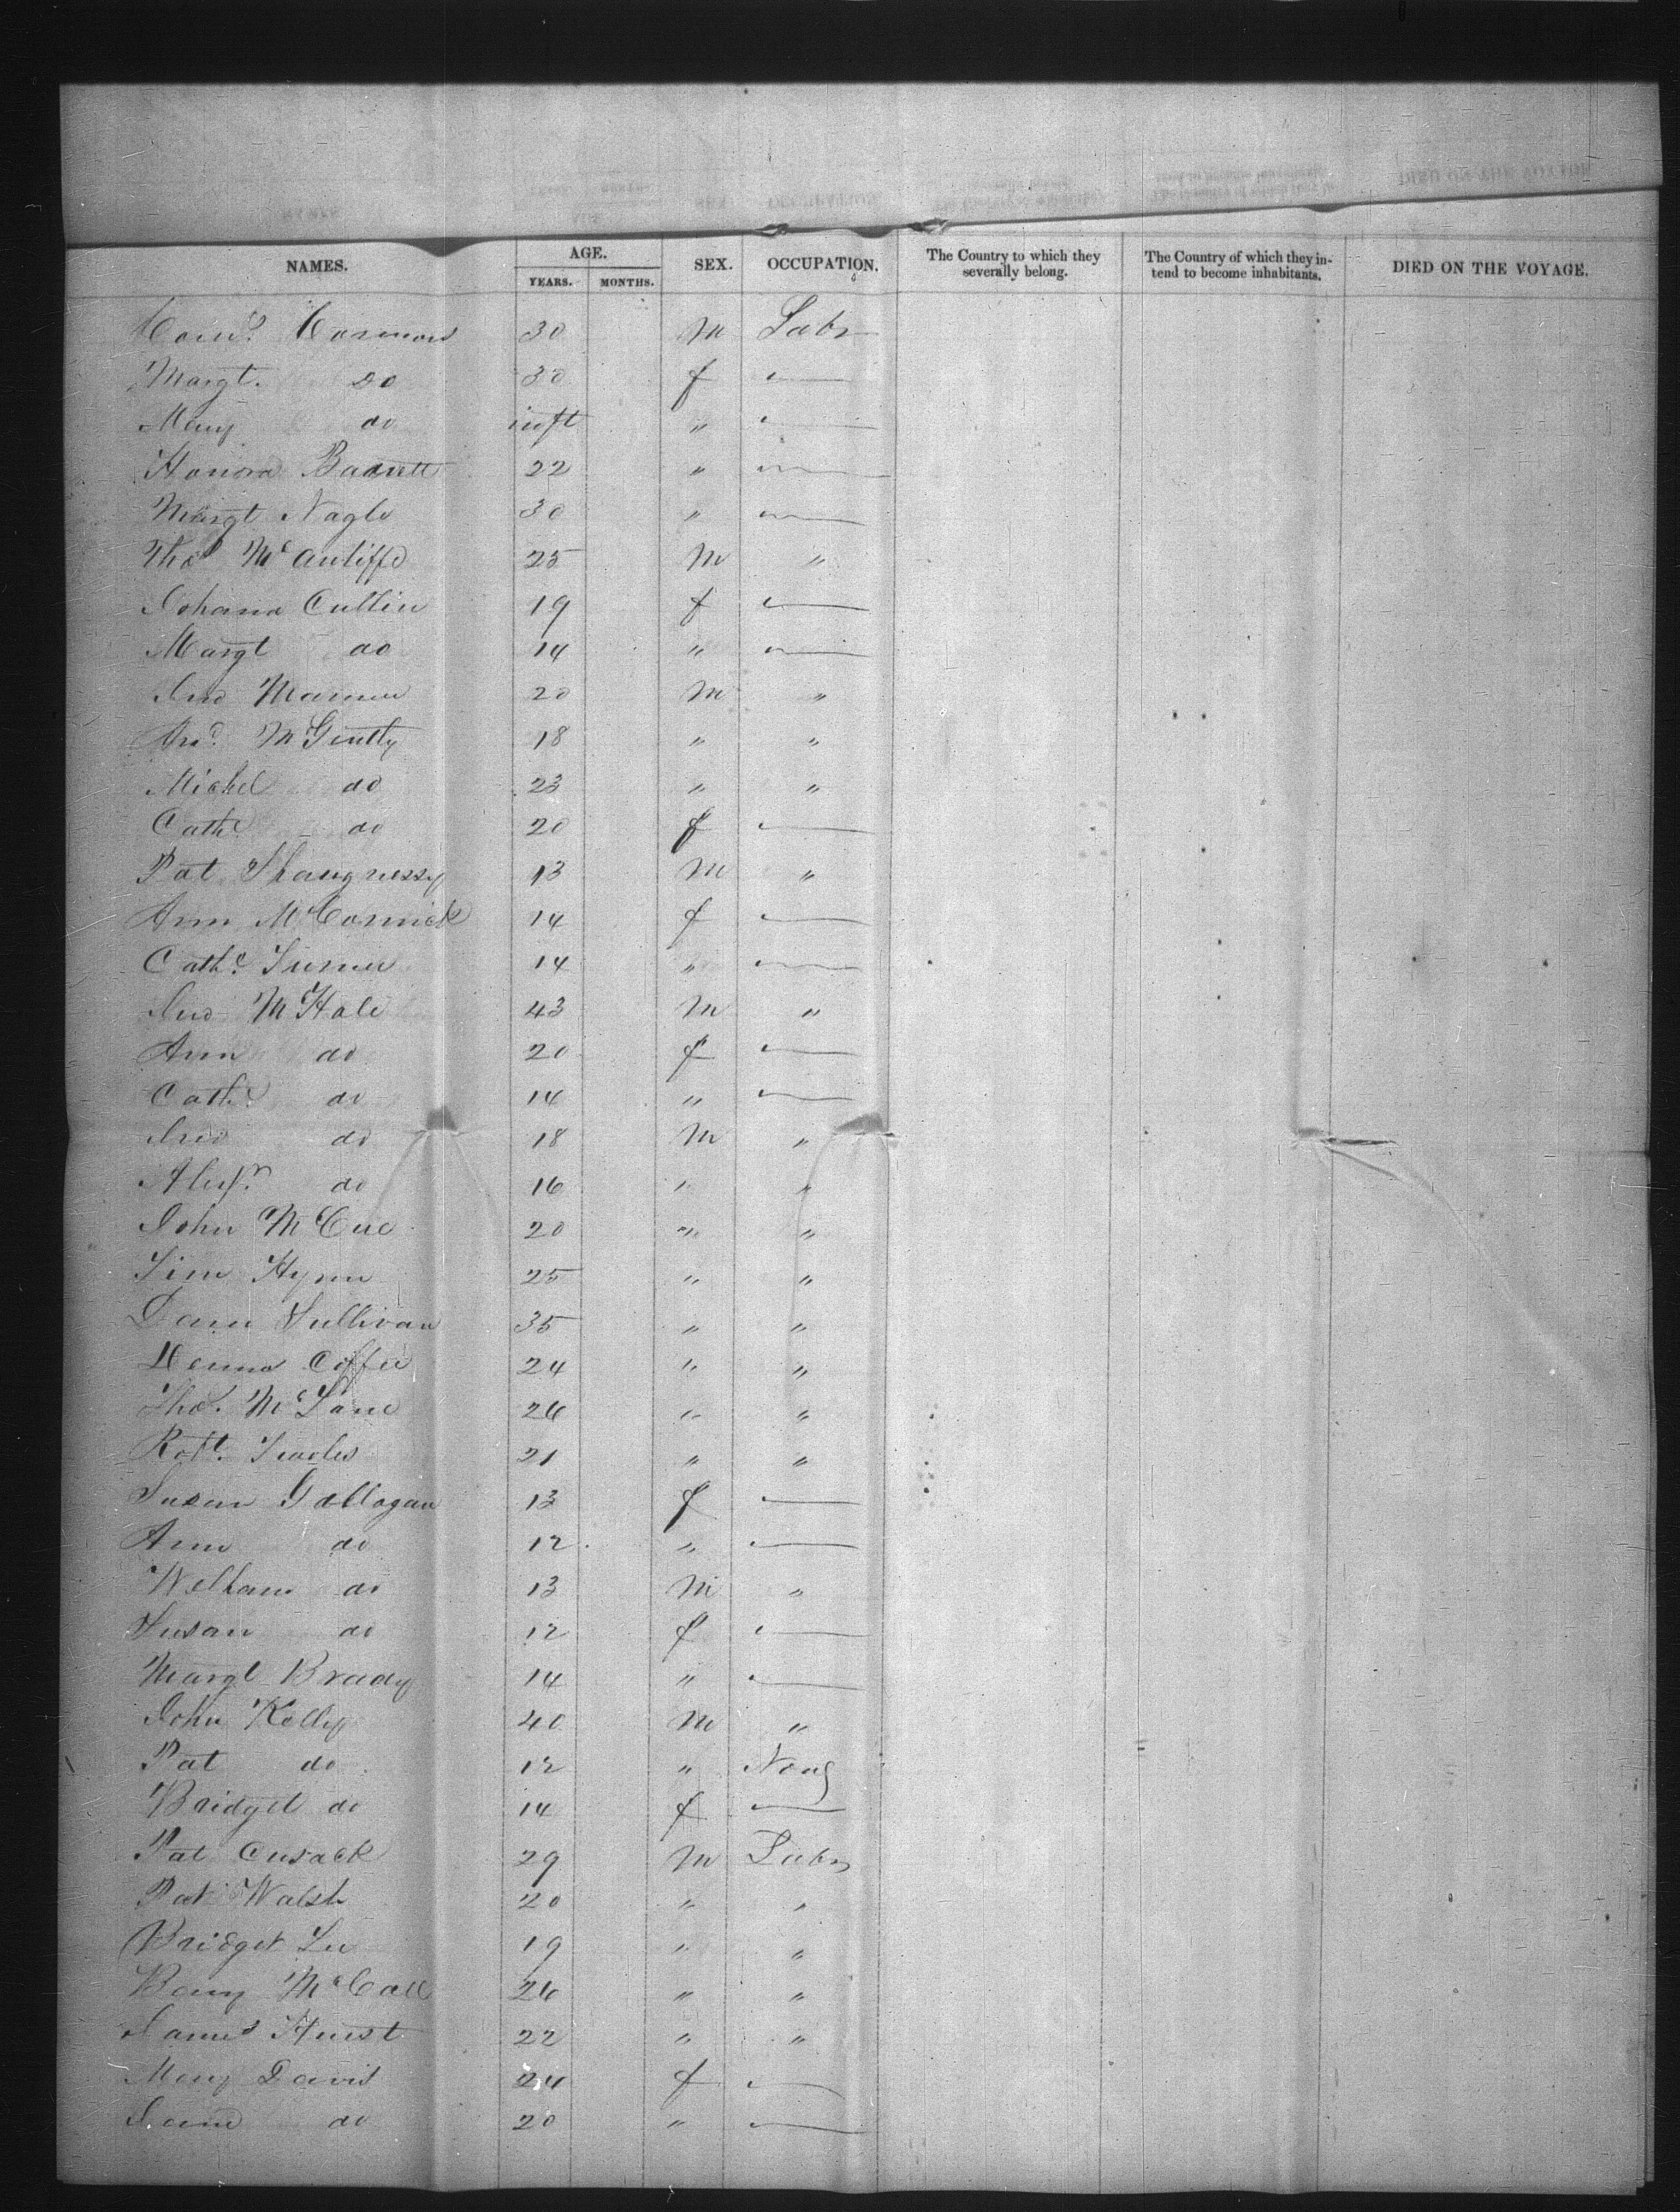 NAMES. AGE. YEARS. MONTHS. SEX. OCCUPATION. The Country to which they severally belong. The Country of which they intend to become inhabitants. DIED ON THE VOYAGE.
30 M Labr
Margt. Do 30 f
Mary do inft "
Honora Barrett 22 "
Margt Nagle 30 "
Thos McAuliffe 25 M "
Johana Cullin 19 f
Margt do 14 "
Jno 20 M "
McGinlty 18 " "
Michel do 23 " "
Cathe do 20 f
Pat Shaugnessy 13 M "
Ann McCormick 14 f
Cathe. Turner 14 "
Jno McHale 43 M "
Ann do 20 f
Cathe do 14 "
Jno do 18 M "
Alexr. do 16 " "
John McCue 20 " "
Tim Hynn 25 " "
Dann Sullivan 35 " "
Coffee 24 " "
Thos. McLane 26 " "
Robt. 21 " "
Susan Gallogan 13 f
Ann do 12 "
William do 13 M "
Susan do 12 f
Margt Brady 14 "
John Kelly 40 M "
Pat do 12 " None
Bridget do 14 f
Pat Cusack 29 M Labr
Pat Walsh 20 " "
Bridget Lee 19 " "
McCall 26 " "
James Hurst 22 " "
Mary Davis 24 f
Jane do 20 "